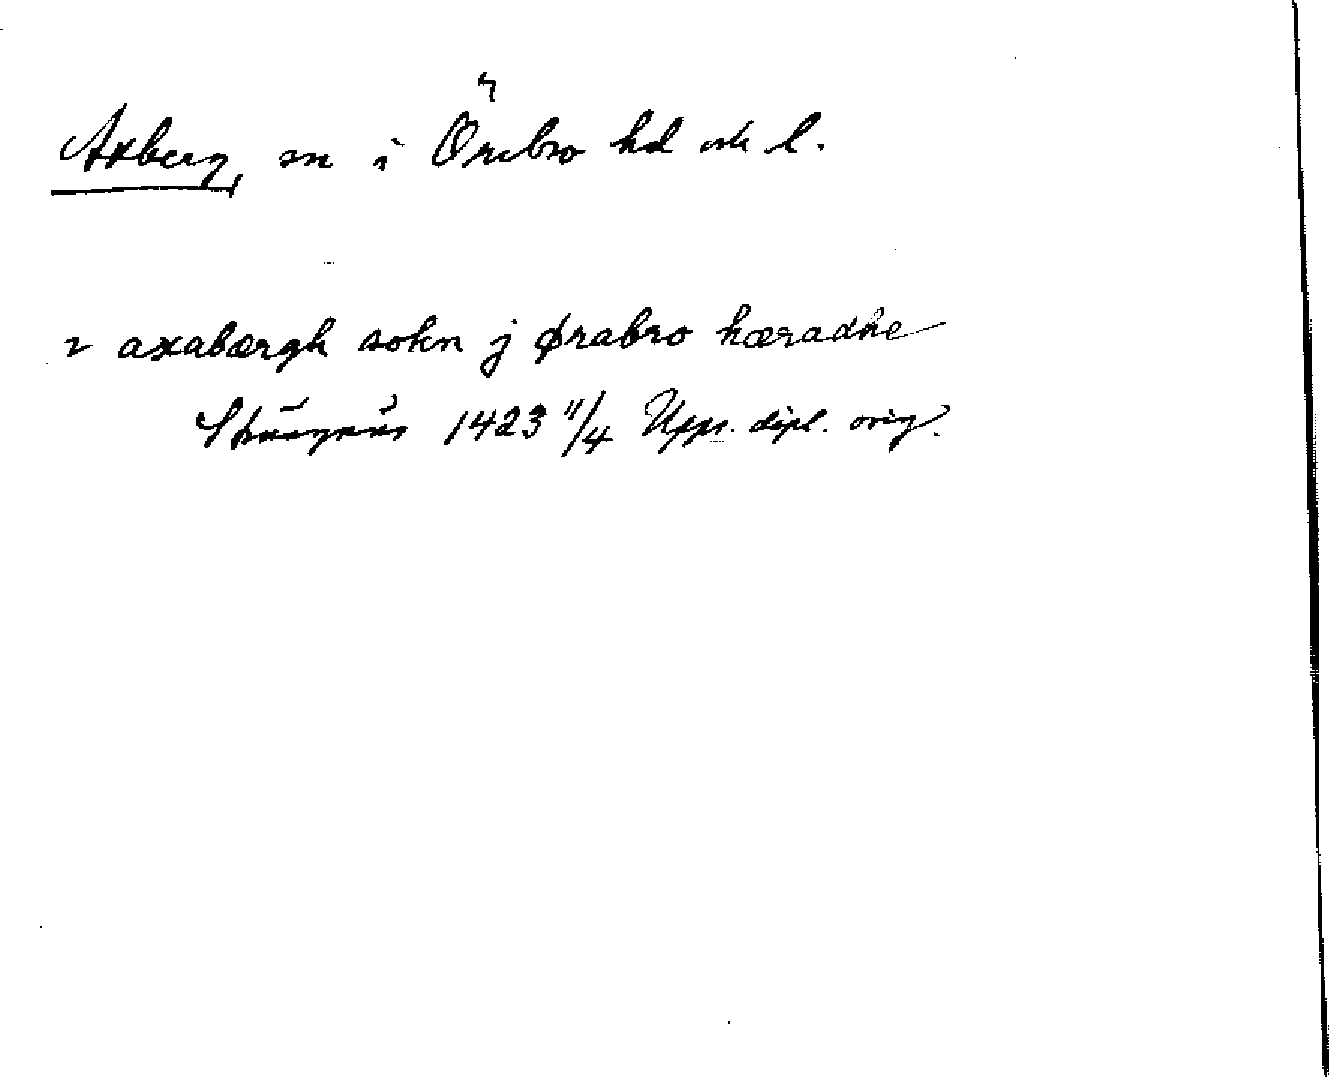 Axberg, sn i Örebro hd och l.
r axabærgh sokn j ørabro hæradhe
Strængnäs 1423 11/4 Upps. dipl. orig.